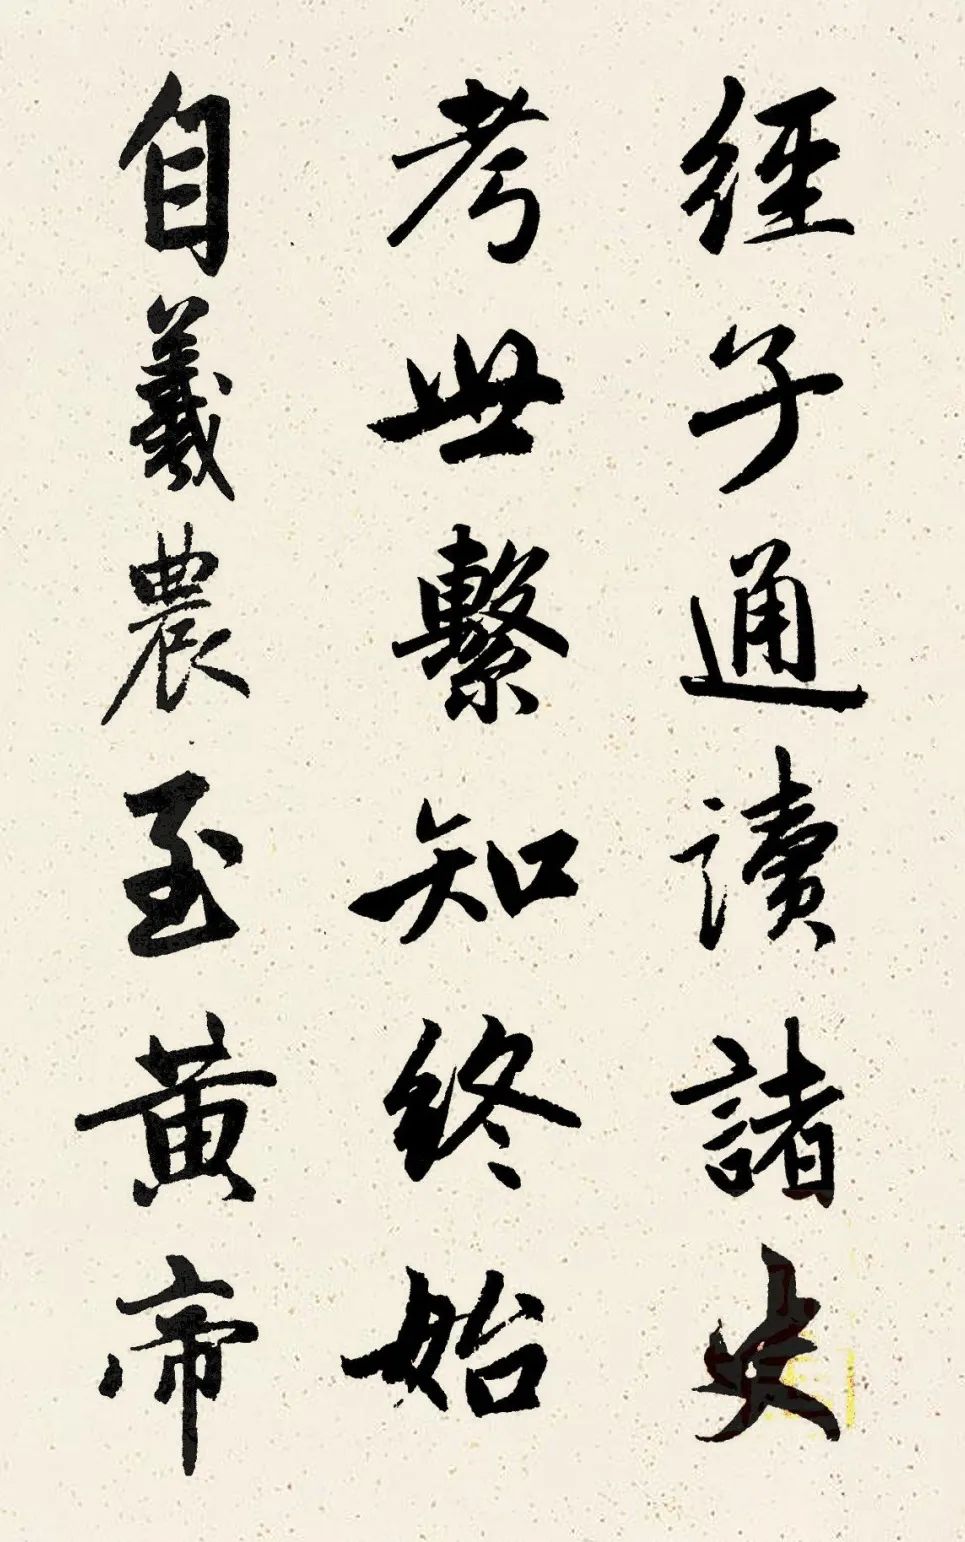 經子通讀諸史
考世繫知終始
自羲農至黃帝